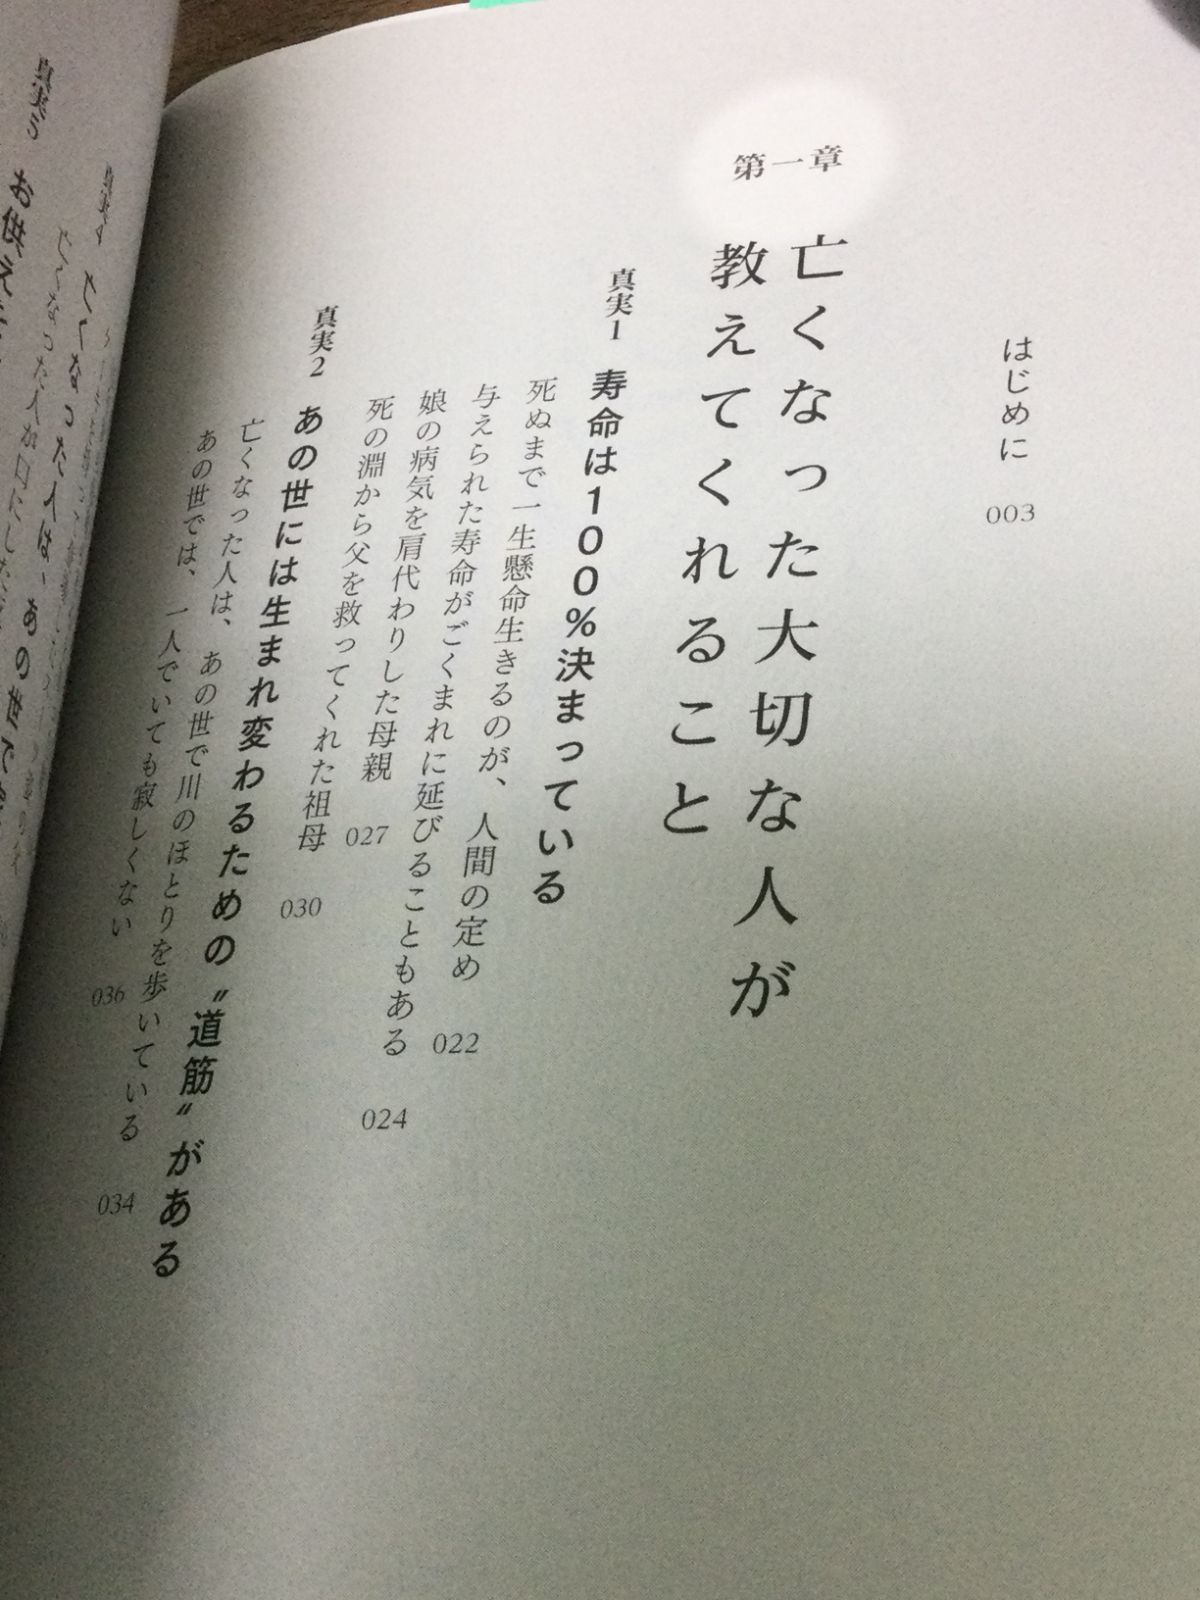 はじめに 003
第一章
亡くなった大切な人が
教えてくれること
真実1 寿命は100%決まっている
死ぬまで一生懸命生きるのが、人間の定め 022
与えられた寿命がごくまれに延びることもある 024
娘の病気を肩代わりした母親 027
死の淵から父を救ってくれた祖母 030
真実2 あの世には生まれ変わるための〝道筋〟がある
亡くなった人は、あの世で川のほとりを歩いている 034
あの世では、一人でいても寂しくない 036
真実4 亡くなった人は、あの世で
亡くなった人が口にした
真実5 お供え